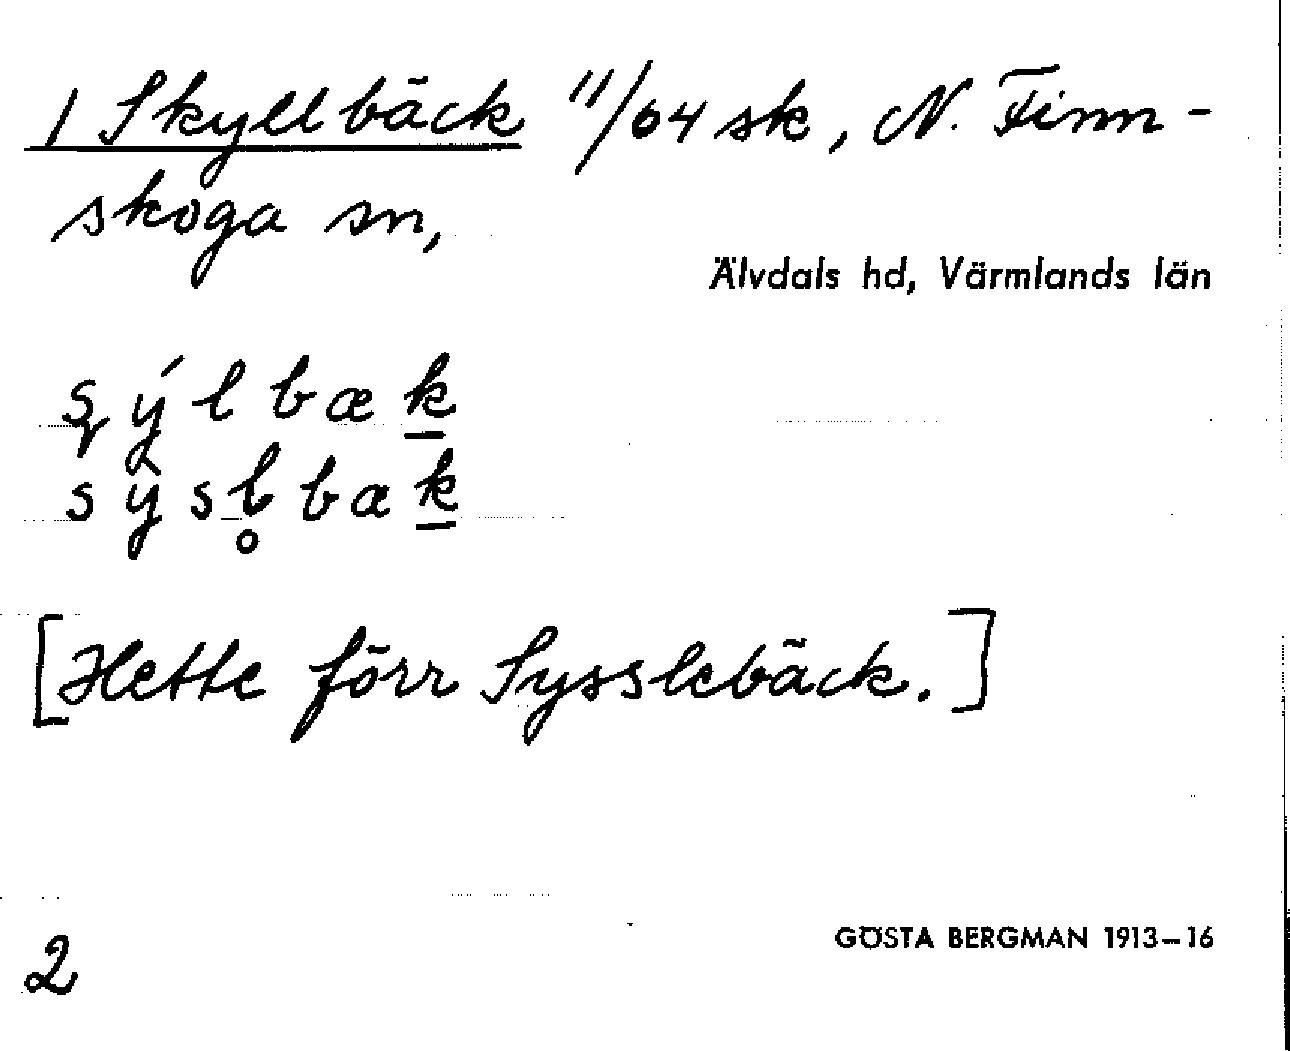 1 Skyllbäck 11/64 sk, N. Finn-
skoga sn,
Älvdals hd, Värmlands län
ʂýlbæk
sy̌sl̥bæk
[Hette förr Sysslebäck.]
GÖSTA BERGMAN 1913–16
2